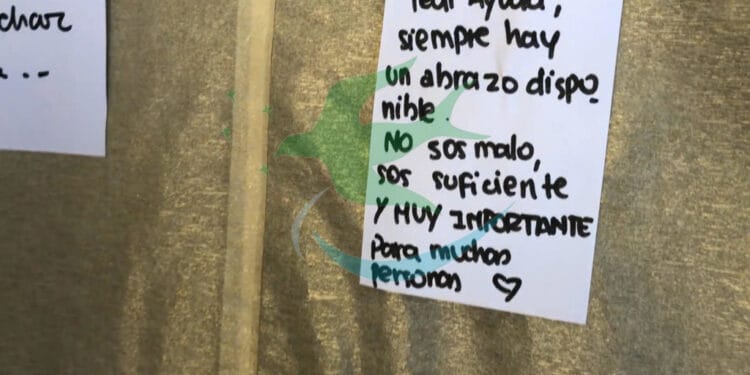 char
siempre hay
un abrazo dispo
nible.
NO sos malo,
sos suficiente
Y MUY IMPORTANTE
para muchas
personas ♡